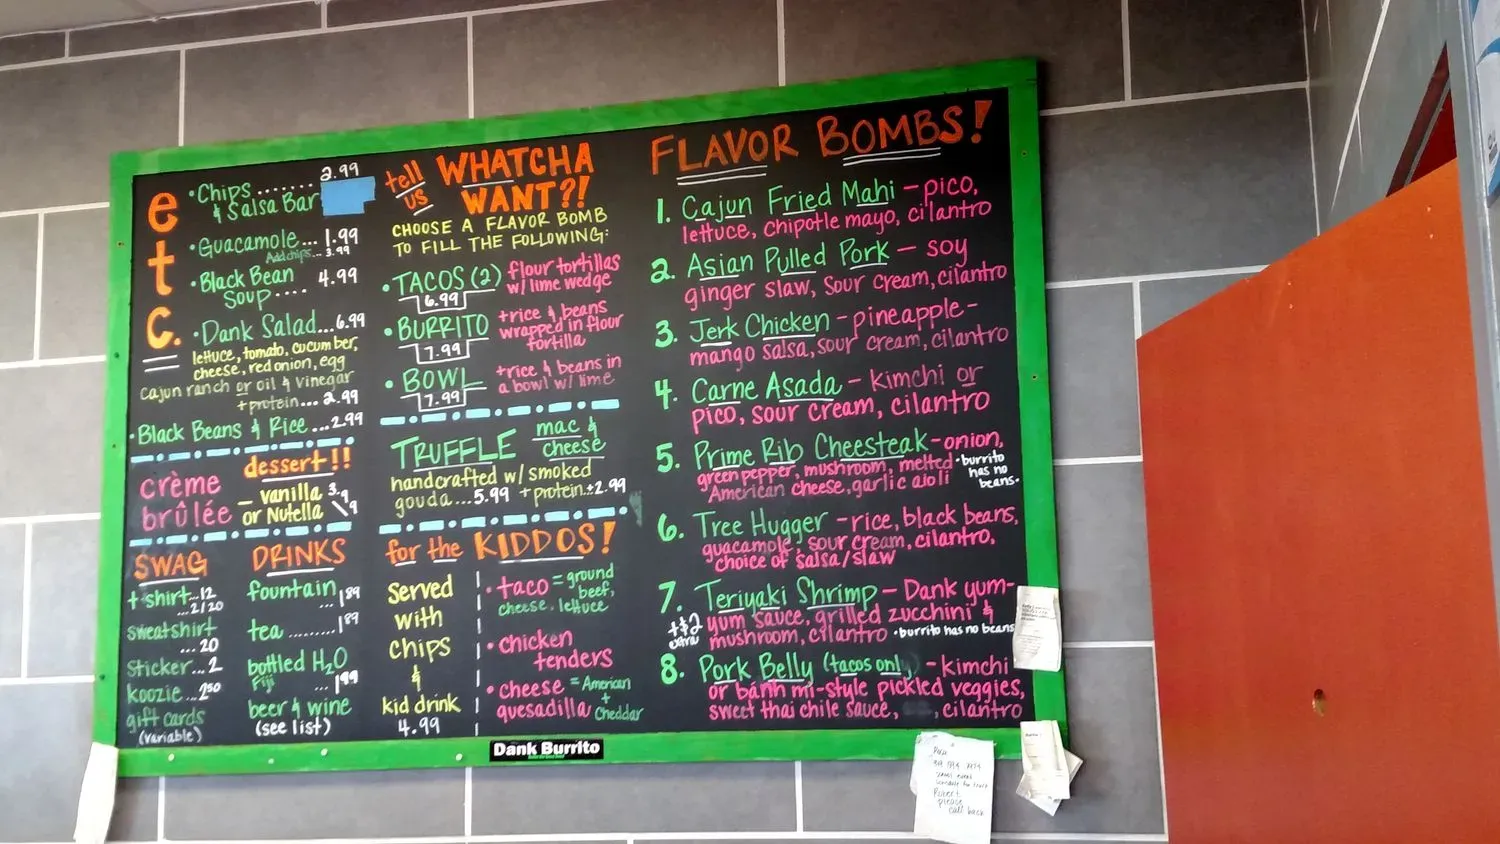 etc.
• Chips ....... 2.99
& Salsa Bar
• Guacamole... 1.99
Add chips... 3.99
• Black Bean
Soup.... 4.99
• Dank Salad...6.99
lettuce, tomato, cucumber,
cheese, red onion, egg
cajun ranch or oil & vinegar
+protein... 2.99
• Black Beans & Rice...2.99
dessert!!
crème
brûlée
– vanilla 3.99
or Nutella
SWAG
t-shirt...12
...2/20
sweatshirt
...20
sticker...2
koozie...2.50
gift cards
(variable)
DRINKS
fountain
...1.89
tea ........1.89
bottled H2O
Fiji ...1.99
beer & wine
(see list)
tell us WHATCHA
WANT?!
CHOOSE A FLAVOR BOMB
TO FILL THE FOLLOWING:
• TACOS (2) flour tortillas
w/ lime wedge
6.99
• BURRITO +rice & beans
wrapped in flour
tortilla
7.99
• BOWL +rice & beans in
a bowl w/ lime
7.99
TRUFFLE mac &
cheese
handcrafted w/ smoked
gouda...5.99 +protein.+2.99
for the KIDDOS!
Served
with
chips
&
kid drink
4.99
• taco = ground
beef,
cheese, lettuce
• chicken
tenders
• cheese = American
quesadilla + Cheddar
FLAVOR BOMBS!
1. Cajun Fried Mahi – pico,
lettuce, chipotle mayo, cilantro
2. Asian Pulled Pork – soy
ginger slaw, sour cream, cilantro
3. Jerk Chicken – pineapple-
mango salsa, sour cream, cilantro
4. Carne Asada – kimchi or
pico, sour cream, cilantro
5. Prime Rib Cheesteak – onion,
green pepper, mushroom, melted
American cheese, garlic aioli
• burrito
has no
beans.
6. Tree Hugger – rice, black beans,
guacamole, sour cream, cilantro,
choice of salsa/slaw
7. Teriyaki Shrimp – Dank yum-
yum sauce, grilled zucchini &
mushroom, cilantro • burrito has no beans
+$2
extra
8. Pork Belly (tacos only) – kimchi
or bánh mì-style pickled veggies,
sweet thai chile sauce, , cilantro
Dank Burrito
Robert
please
call back